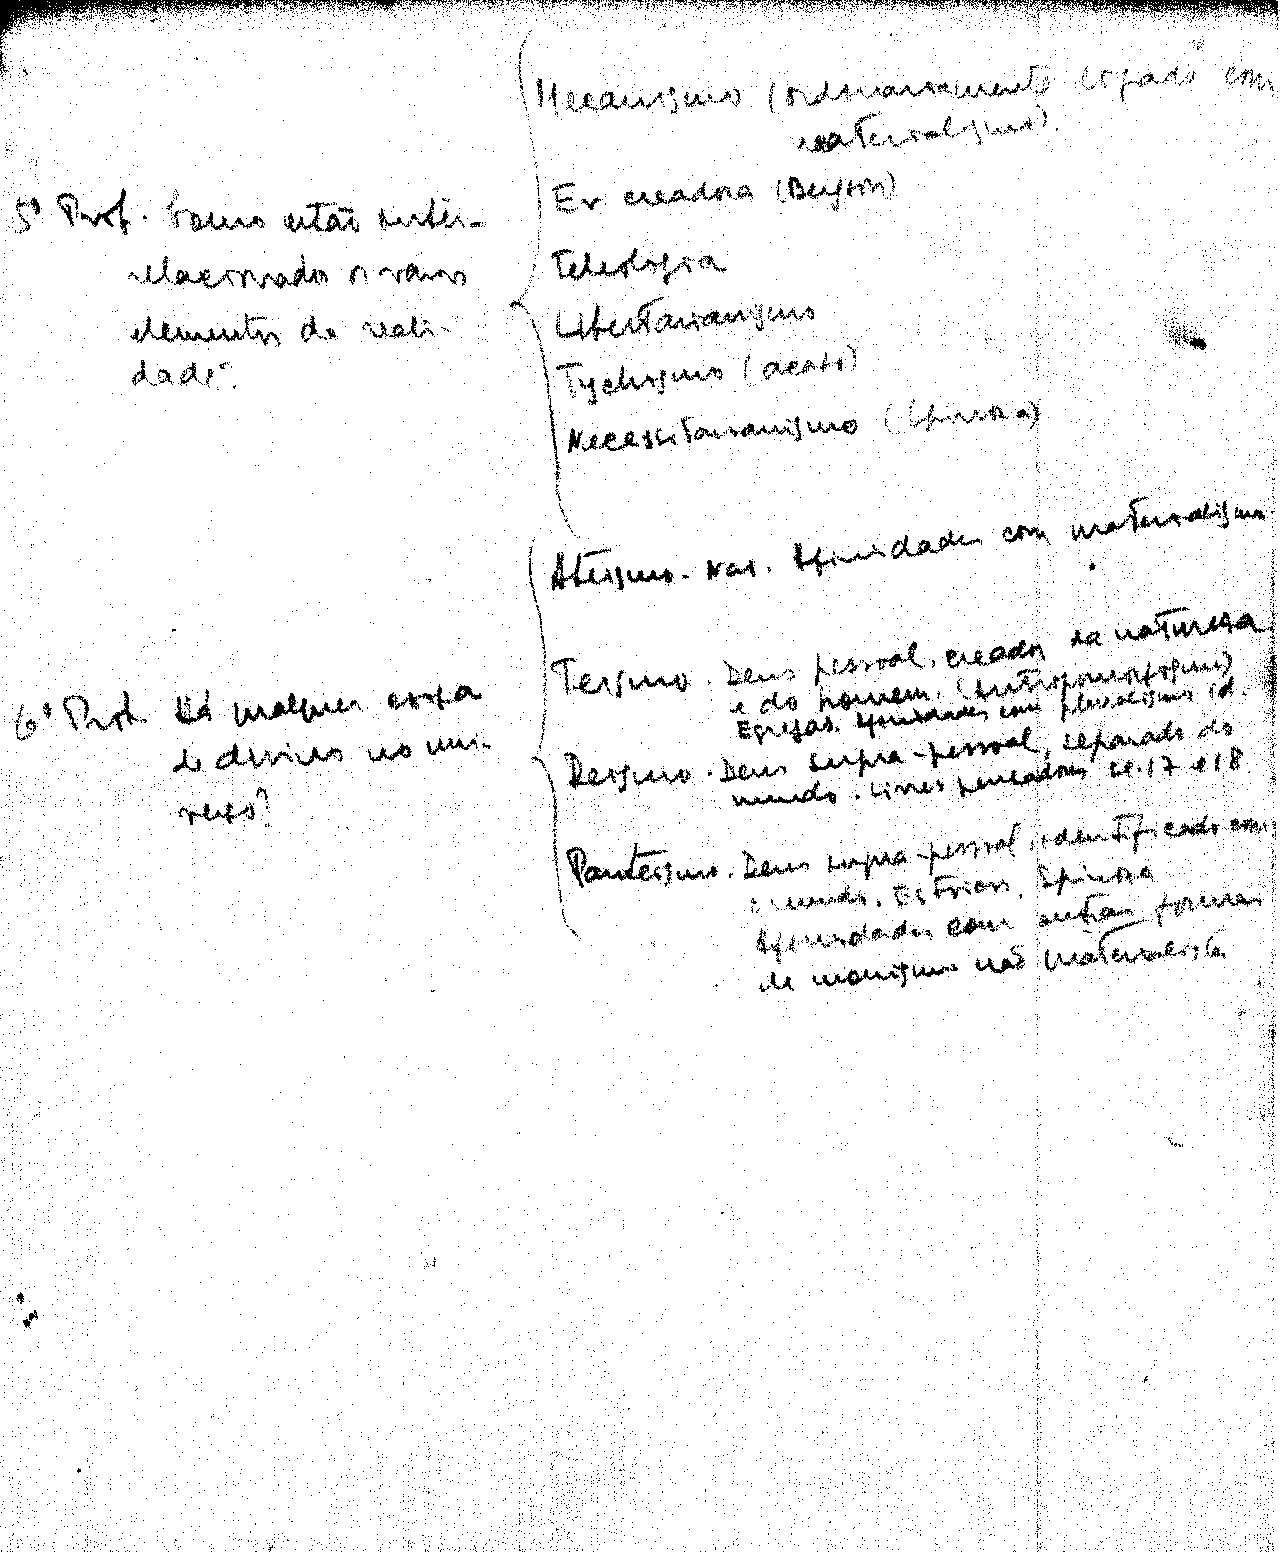 5º Prob. Como estão inter-
relacionados os varios
elementos da reali-
dade.
Mecanismo (ordinariamente ligado com
materialismo).
Ev creadora (Bergson)
Teleologia
Libertarianismo
Tychismo (acaso)
Necessitarianismo (Spinosa)
6º Prob. Há qualquer coisa
de divino no uni-
verso?
Ateismo. Nao. Afinidades com materialismo
Teismo. Deus pessoal, creador da natureza
e do homem. (Antropomorfismo)
Egrejas. Afinidades com pluralismo id.
Deismo. Deus supra-pessoal, separado do
mundo. Livres pensadores se. 17 e 18
Panteismo. Deus supra-pessoal identificado com
o mundo. Estoicos. Spinosa
Afinidades com outras formas
de monismo não materialista